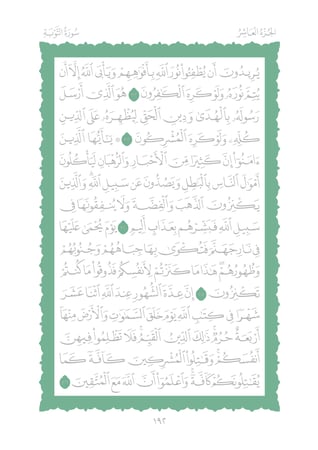 الجزء العاشر سورة التوبة
يُرِيدُونَ أَن يُطْفِـُٔوا۟ نُورَ ٱللَّهِ بِأَفْوَٰهِهِمْ وَيَأْبَى ٱللَّهُ إِلَّآ أَن
يُتِمَّ نُورَهُۥ وَلَوْ كَرِهَ ٱلْكَـٰفِرُونَ ٣٢ هُوَ ٱلَّذِىٓ أَرْسَلَ
رَسُولَهُۥ بِٱلْهُدَىٰ وَدِينِ ٱلْحَقِّ لِيُظْهِرَهُۥ عَلَى ٱلدِّينِ
كُلِّهِۦ وَلَوْ كَرِهَ ٱلْمُشْرِكُونَ ٣٣ ۞ يَـٰٓأَيُّهَا ٱلَّذِينَ
ءَامَنُوٓا۟ إِنَّ كَثِيرًا مِّنَ ٱلْأَحْبَارِ وَٱلرُّهْبَانِ لَيَأْكُلُونَ
أَمْوَٰلَ ٱلنَّاسِ بِٱلْبَـٰطِلِ وَيَصُدُّونَ عَن سَبِيلِ ٱللَّهِ ۗ وَٱلَّذِينَ
يَكْنِزُونَ ٱلذَّهَبَ وَٱلْفِضَّةَ وَلَا يُنفِقُونَهَا فِى
سَبِيلِ ٱللَّهِ فَبَشِّرْهُم بِعَذَابٍ أَلِيمٍ ٣٤ يَوْمَ يُحْمَىٰ عَلَيْهَا
فِى نَارِ جَهَنَّمَ فَتُكْوَىٰ بِهَا جِبَاهُهُمْ وَجُنُوبُهُمْ
وَظُهُورُهُمْ ۖ هَـٰذَا مَا كَنَزْتُمْ لِأَنفُسِكُمْ فَذُوقُوا۟ مَا كُنتُمْ
تَكْنِزُونَ ٣٥ إِنَّ عِدَّةَ ٱلشُّهُورِ عِندَ ٱللَّهِ ٱثْنَا عَشَرَ
شَهْرًا فِى كِتَـٰبِ ٱللَّهِ يَوْمَ خَلَقَ ٱلسَّمَـٰوَٰتِ وَٱلْأَرْضَ مِنْهَآ
أَرْبَعَةٌ حُرُمٌ ۚ ذَٰلِكَ ٱلدِّينُ ٱلْقَيِّمُ ۚ فَلَا تَظْلِمُوا۟ فِيهِنَّ
أَنفُسَكُمْ ۚ وَقَـٰتِلُوا۟ ٱلْمُشْرِكِينَ كَآفَّةً كَمَا
يُقَـٰتِلُونَكُمْ كَآفَّةً ۚ وَٱعْلَمُوٓا۟ أَنَّ ٱللَّهَ مَعَ ٱلْمُتَّقِينَ ٣٦
١٩٢